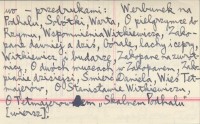 wo — przedrukami: Werbunek na
Podhalu, Sobótki, Warta, O pielgrzymce do
Rzymu, Wspomnienia Witkiewicza, Zako-
pane dawniej a dziś, Górale, Lachy i cepry,
Witkiewicz i budarze, Zakopane nazwy
nicy, O dwóch muzeach w Zakopanem, Zako-
piańscy dzisiejsi, Śmierć Daniela, Wieś Tet-
majerów, O Stanisławie Witkiewiczu,
O Tetmajerowskiem "Skalnem Podhalu"
[wiersz].